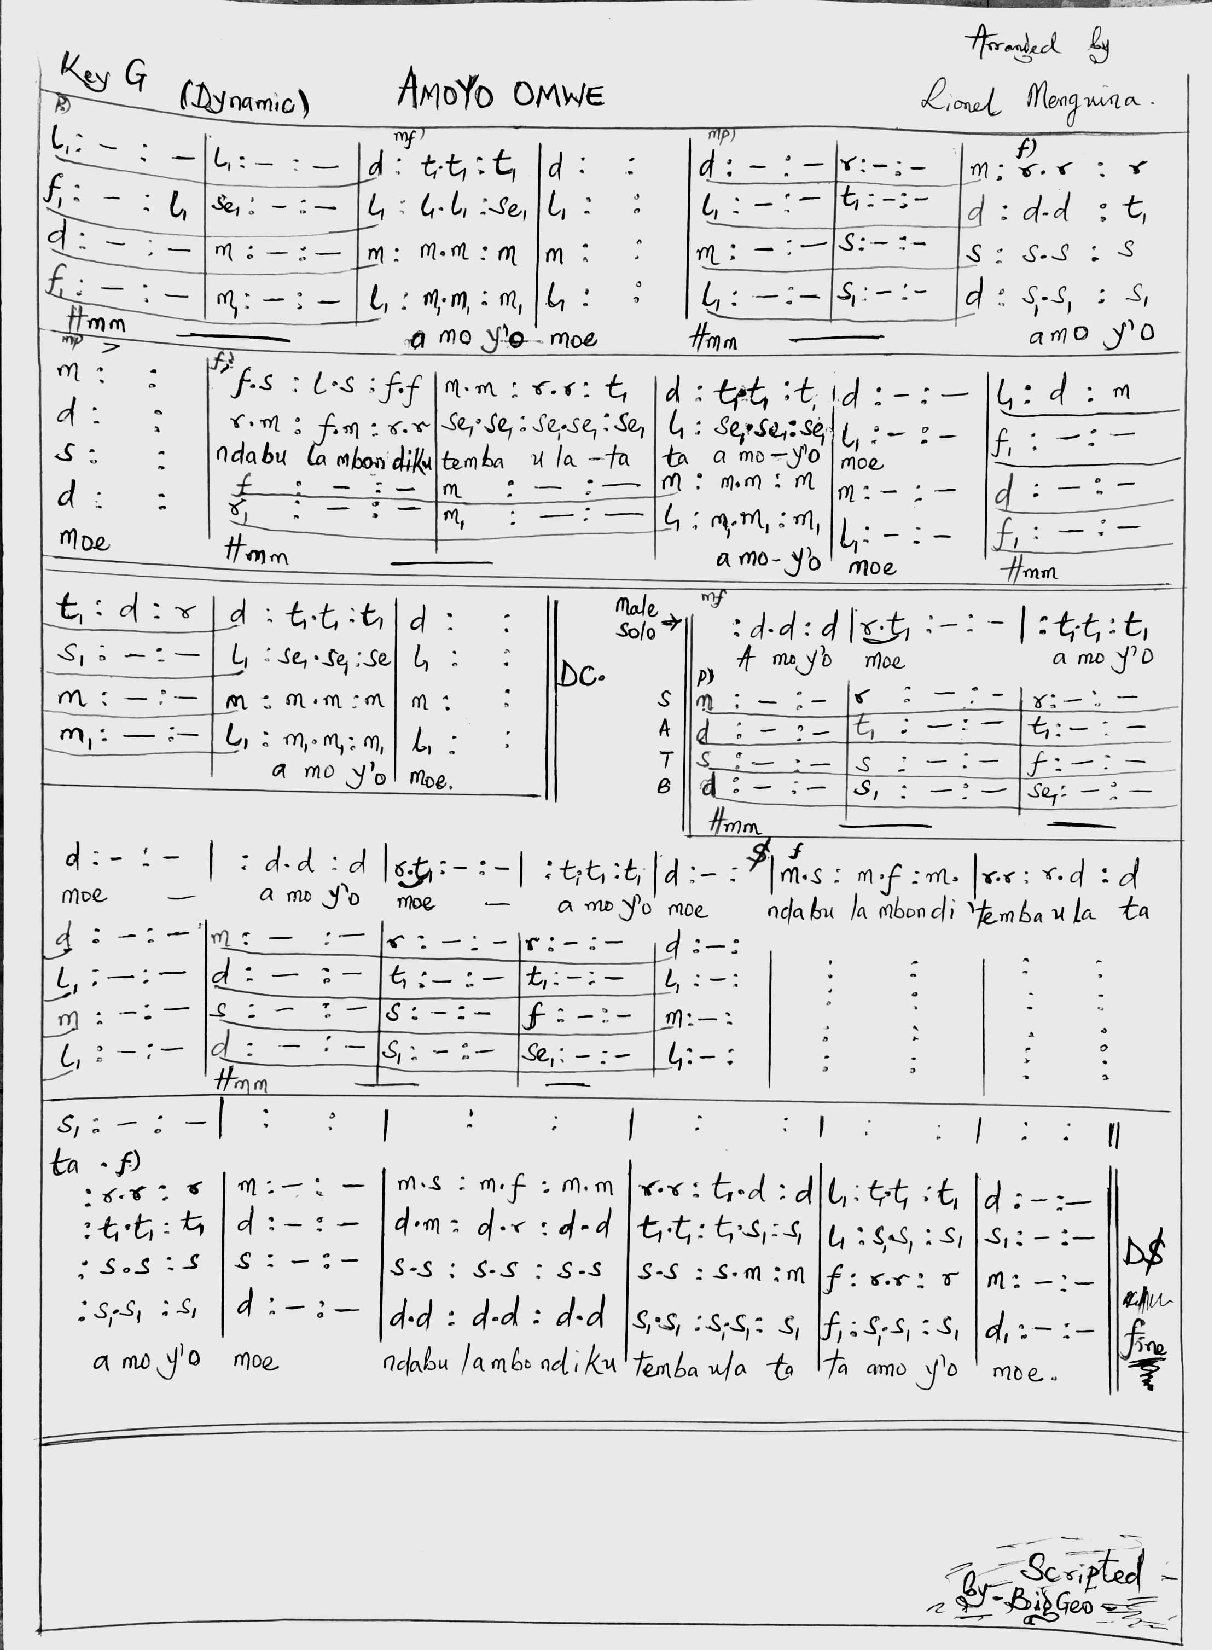 Key G (Dynamic) AMOYO OMWE Arranged by
Lionel Menguina.
p) mf) mp) f)
l₁ : – : – | l₁ : – : – | d : t₁.t₁ : t₁ | d : : | d : – : – | r : – : – | m : r.r : r
f₁ : – : l₁ | se₁ : – : – | l₁ : l₁.l₁ : se₁ | l₁ : : | l₁ : – : – | t₁ : – : – | d : d.d : t₁
d : – : – | m : – : – | m : m.m : m | m : : | m : – : – | s : – : – | s : s.s : s
f₁ : – : – | m₁ : – : – | l₁ : m₁.m₁ : m₁ | l₁ : : | l₁ : – : – | s₁ : – : – | d : s₁.s₁ : s₁
Hmm a mo y'o moe Hmm amo y'o
mp > f)
m : : | f.s : l.s : f.f | m.m : r.r : t₁ | d : t₁.t₁ : t₁ | d : – : – | l₁ : d : m
d : : | r.m : f.m : r.r | se₁.se₁ : se₁.se₁ : se₁ | l₁ : se₁.se₁ : se₁ | l₁ : – : – | f₁ : – : –
s : : | ndabu la mbondiku temba u la -ta ta a mo-y'o moe
d : : | f : – : – | m : – : – | m : m.m : m | m : – : – | d : – : –
r₁ : – : – | m₁ : – : – | l₁ : m₁.m₁ : m₁ | l₁ : – : – | f₁ : – : –
moe Hmm a mo-y'o moe Hmm
t₁ : d : r | d : t₁.t₁ : t₁ | d : :
s₁ : – : – | l₁ : se₁.se₁ : se | l₁ : :
m : – : – | m : m.m : m | m : :
m₁ : – : – | l₁ : m₁.m₁ : m₁ | l₁ : :
a mo y'o moe.
DC.
Male Solo → mf
: d.d : d | r.t₁ : – : – | : t₁.t₁ : t₁
A mo y'o moe a mo y'o
p)
S m : – : – | r : – : – | r : – : –
A d : – : – | t₁ : – : – | t₁ : – : –
T s : – : – | s : – : – | f : – : –
B d : – : – | s₁ : – : – | se₁ : – : –
Hmm
d : – : – | : d.d : d | r.t₁ : – : – | : t₁.t₁ : t₁ | d : – : $ f | m.s : m.f : m. | r.r : r.d : d
moe — a mo y'o moe — a mo y'o moe ndabu la mbondi 'temba u la ta
d : – : – | m : – : – | r : – : – | r : – : – | d : – : | : : | : :
l₁ : – : – | d : – : – | t₁ : – : – | t₁ : – : – | l₁ : – : | : : | : :
m : – : – | s : – : – | s : – : – | f : – : – | m : – : | : : | : :
l₁ : – : – | d : – : – | s₁ : – : – | se₁ : – : – | l₁ : – : | : : | : :
Hmm
s₁ : – : – | : : | : : | : : | : : | : : ||
ta . f)
: r.r : r | m : – : – | m.s : m.f : m.m | r.r : t₁.d : d | l₁ : t₁.t₁ : t₁ | d : – : –
: t₁.t₁ : t₁ | d : – : – | d.m : d.r : d.d | t₁.t₁ : t₁.s₁ : s₁ | l₁ : s₁.s₁ : s₁ | s₁ : – : –
: s.s : s | s : – : – | s.s : s.s : s.s | s.s : s.m : m | f : r.r : r | m : – : –
: s₁.s₁ : s₁ | d : – : – | d.d : d.d : d.d | s₁.s₁ : s₁.s₁ : s₁ | f₁ : s₁.s₁ : s₁ | d₁ : – : –
a mo y'o moe ndabu la mbondiku temba ula ta ta amo y'o moe.
D$
fine
Scripted
By - BigGeo